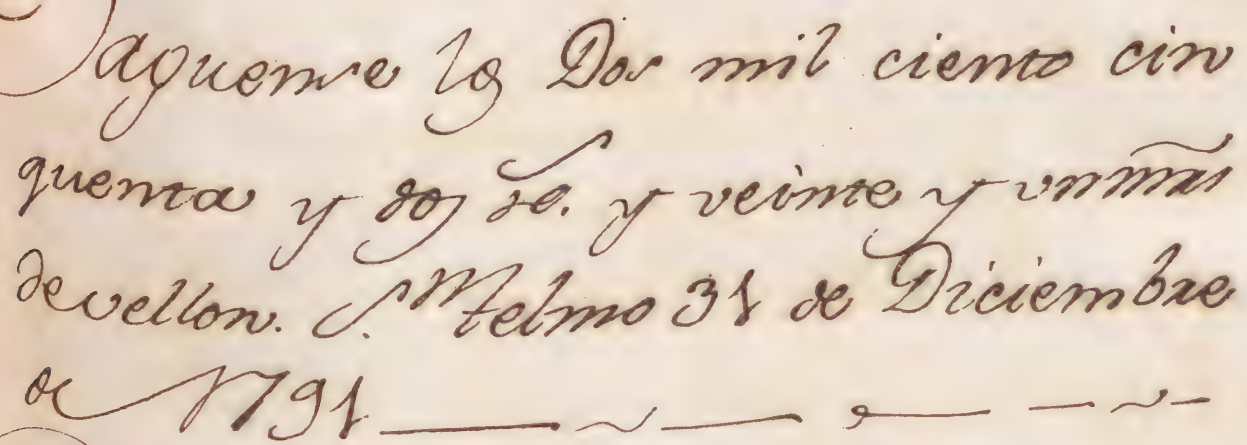 Saquense los Dos mil ciento cin
quenta y dos rs. y veinte y un mrs
de vellon. S.n telmo 31 de Diciembre
de 1791